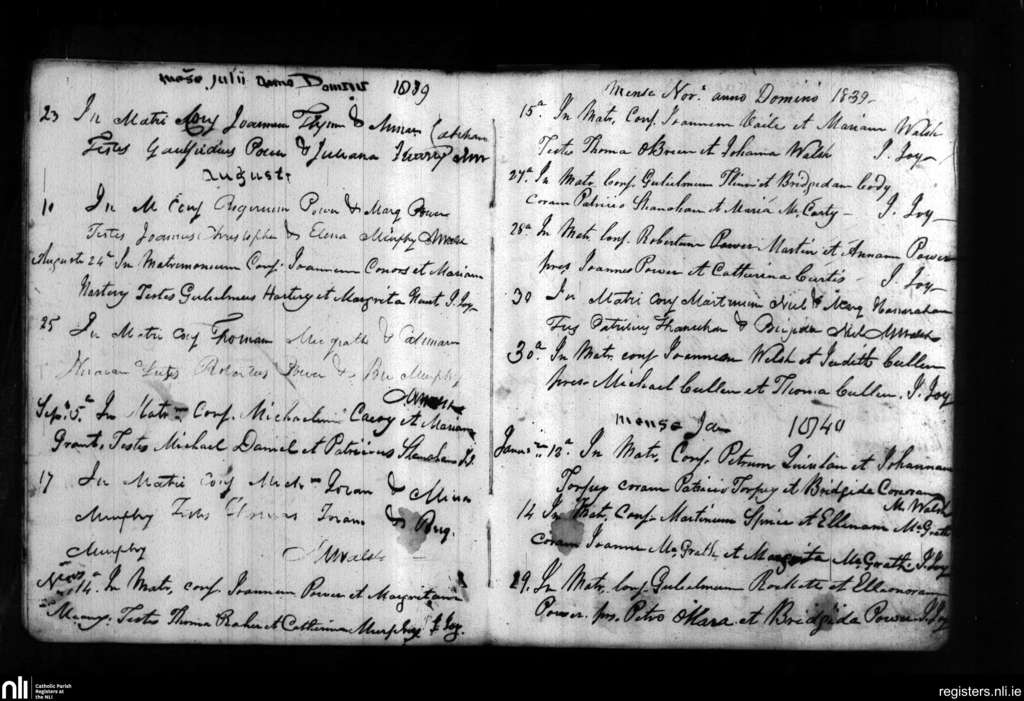 mense Julii anno Domini 1839
23 In Matri Conj Joannem Flynn & Annam
Testes Galfridus Power & Juliana
Augusti
10 In M Conj Rogerium Power & Marg Power
Testes Joannes Christopher & Elena Murphy MWalsh
Augusti 24a In Matrimonium Conj. Joannem Conors et Mariam
Hartery Testes Gulielmus Hartery et Margrita Hunt J. Joy
25 In Matri conj Thomam Megrath &
Testes Robertus Power & Bri Murphy
MWalsh
Sepr. 5a In Matr Conj. Michaelem Casey et Mariam
Grant, Testes Michael Daniel et Patricius Shanahan
17 In Matri Conj Mich Foran &
Murphy Testes Thomas Foran & Brig.
Murphy MWalsh
Novr 14. In Matr. conj Joannem Power et Margritam
Meany. Testes Thoma et Catherina Murphy J Joy.
Mense Novr. anno Domini 1839
15a In Matr. Conj. Joannem Veile et Mariam Walsh
Testes Thoma OBrien et Johanna Walsh J. Joy
27a In Matr. Conj. Gulielmum Flinn et Bridgidam Cody
coram Patricio Shanahan et Maria McCarty J. Joy
28a In Matr. Conj. Robertum Power Martin et Annam Power
pres Joannes Power et Catherina Curtis J. Joy
30 In Matri conj Martinum Neil & Mary Hanrahan
Tes Patritius Shanahan & Brigida Neil MWalsh
30a In Matr. conj Joannem Walsh et Judith Cullen
pres Michael Cullen et Thoma Cullen. J. Joy
mense Jan 1840
12a In Matr. Conj Petrum Quinlan et Johannam
Torpey coram Patricio Torpey et Bridgida Conoran
M. Walsh
14 In Matr. Conj Martinum Spince et Ellenam McGrath
coram Joanne McGrath et Margrita McGrath J. Joy
29. In Matr. Conj. Gulielmum Rockett et Elleonoram
Power. prs. Petro OMara et Bridgida Power J. Joy
nli
Catholic Parish
Registers at
the NLI
registers.nli.ie